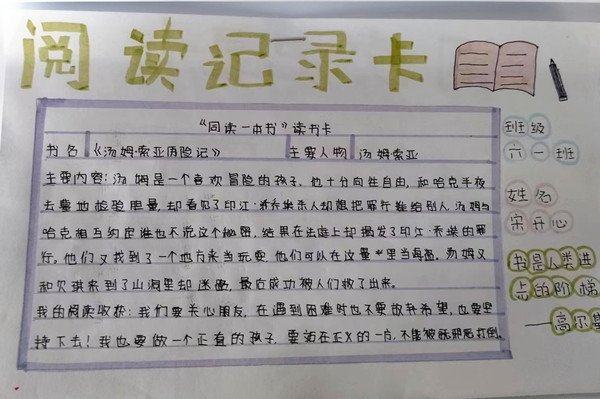 阅读记录卡
“同读一本书”读书卡
书名《汤姆·索亚历险记》 主要人物 汤姆·索亚
主要内容:汤姆是一个喜欢冒险的孩子,他十分向往自由,和哈克半夜
去墓地检验胆量,却看见了印江·乔杀人却想把罪行推给别人,汤姆与
哈克相互约定谁也不说这个秘密,结果在法庭上却揭发了印江·乔的罪
行。他们又找到了一个地方来当玩耍,他们可以在这里当海盗,汤姆又
和贝琪来到了山洞里却迷路,最后成功被人们救了出来。
我的阅读收获:我们要关心朋友,在遇到困难时也不要放弃希望,也要坚
持下去!我也要做一个正直的孩子,要站在正义的一方,不能被打倒。
班级
六一班
姓名
宋开心
书是人类进
步的阶梯
——高尔基